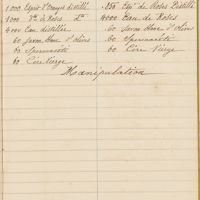 1000 Esprit d'Oranger distillé
1000 d° de Roses d°
4000 Eau distillée
60 Savon blanc d'olives
60 Spermaceti
60 Cire Vierge
.250 Esp.t de Roses Distillé
4000 Eau de Roses
60 Savon blanc d'olives
60 Spermaceti
60 Cire Vierge
Manipulation